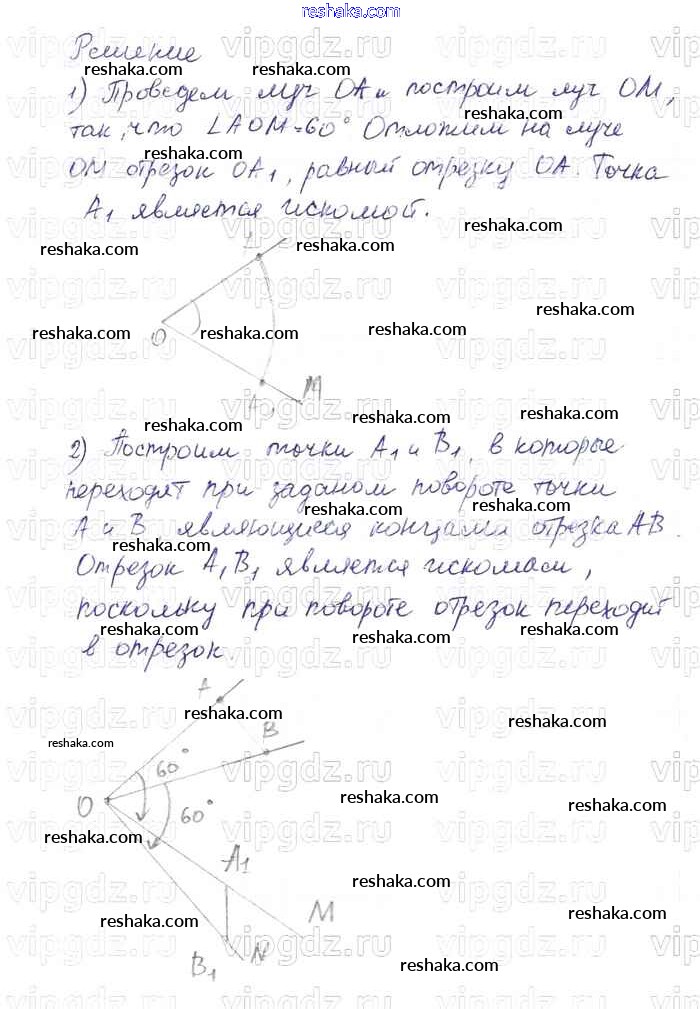 reshaka.com
Решение
1) Проведем луч OA и построим луч OM,
так, что ∠AOM=60° Отложим на луче
OM отрезок OA₁, равный отрезку OA. Точка
A₁ является искомой.
O
M
2) Построим точки A₁ и B₁, в которые
переходят при заданом повороте точки
A и B являющиеся концами отрезка AB.
Отрезок A₁B₁ является искомаси,
поскольку при повороте отрезок переходит
в отрезок.
A
B
60°
O
60°
A₁
M
N
B₁